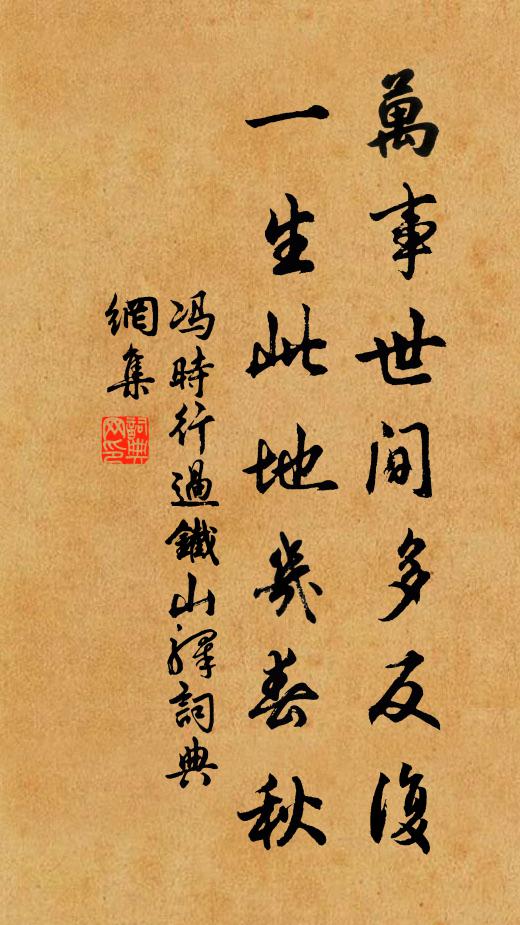 萬事世間多反復
一生此地幾春秋
馮時行過鐵山驛詞典
網集
詞典
网印